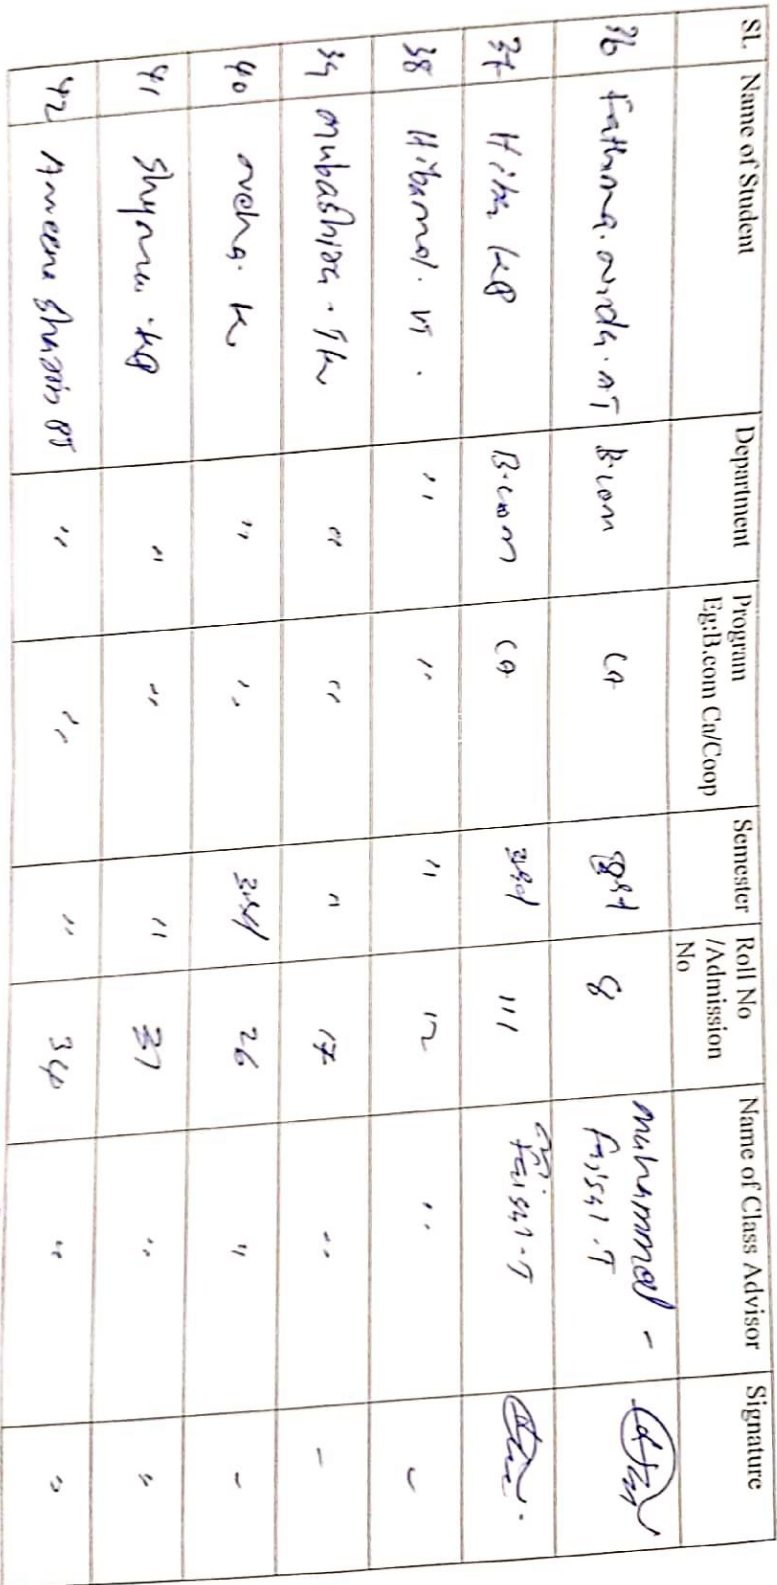 SL Name of Student Department Program Eg:B.com Ca/Coop Semester Roll No /Admission No Name of Class Advisor Signature
36 Fathima. nida. AT B.com CA 3rd 8 muhammed - Faisal. T
37 Hiba KP B.com CA 3rd 111 Faisal. T
38 Hibamol. VT. " " " 12 "
39 mubashira. TK " " " 17 " -
40 neha. K " " 3rd 26 " "
41 Shyma. KP " " " 37 " "
42 Ameena Sherin PT " " " 34 " "